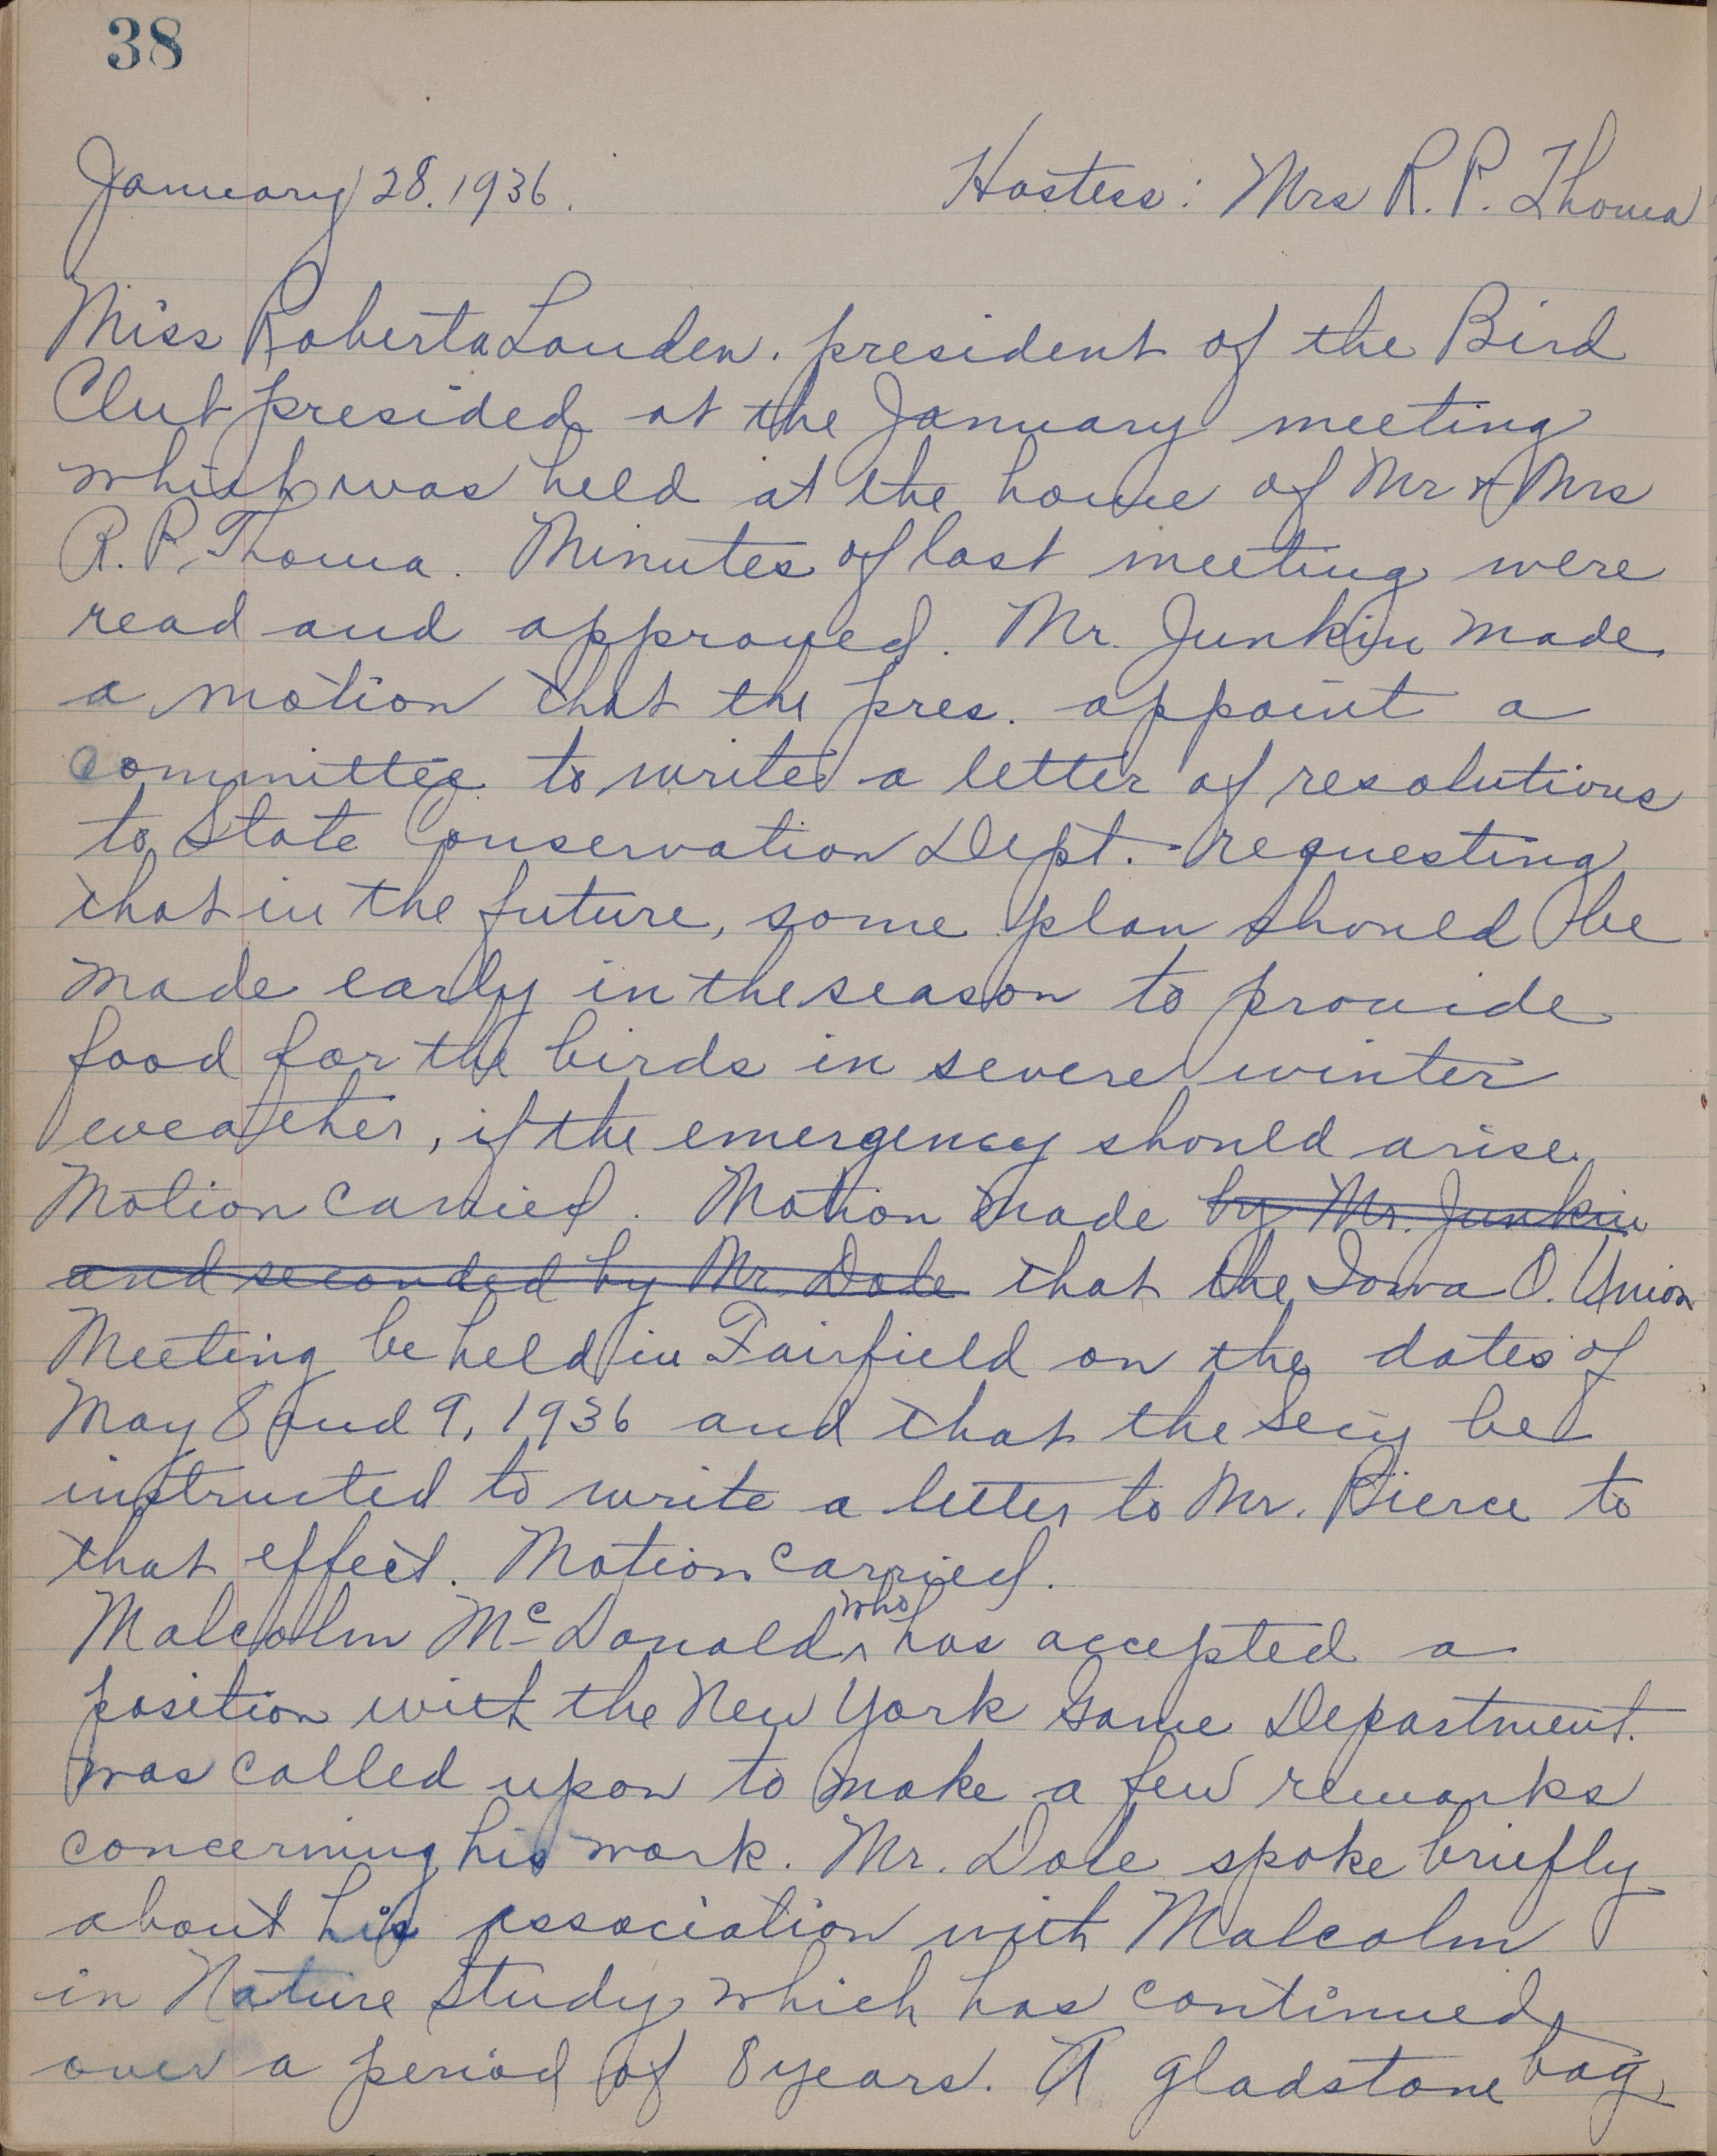 38
January 28. 1936. Hostess: Mrs R. P. Thoma
Miss Roberta Louden. president of the Bird
Club presided at the January meeting
which was held at the home of Mr & Mrs
R. P. Thoma. Minutes of last meeting were
read and approved. Mr. Junkin made
a motion that the pres. appoint a
committee to write a letter of resolutions
to State Conservation Dept. requesting
that in the future, some plan should be
made early in the season to provide
food for the birds in severe winter
weather, if the emergency should arise.
Motion carried. Motion made by Mr. Junkin
and seconded by Mr. Dole that the Iowa O. Union
Meeting be held in Fairfield on the dates of
May 8 and 9, 1936 and that the Secy be
instructed to write a letter to Mr. Pierce to
that effect. Motion carried.
Malcolm McDonald who has accepted a
position with the New York Game Department.
was called upon to make a few remarks
concerning his work. Mr. Dole spoke briefly
about his association with Malcolm
in Nature Study which has continued
over a period of 8 years. A gladstone bag